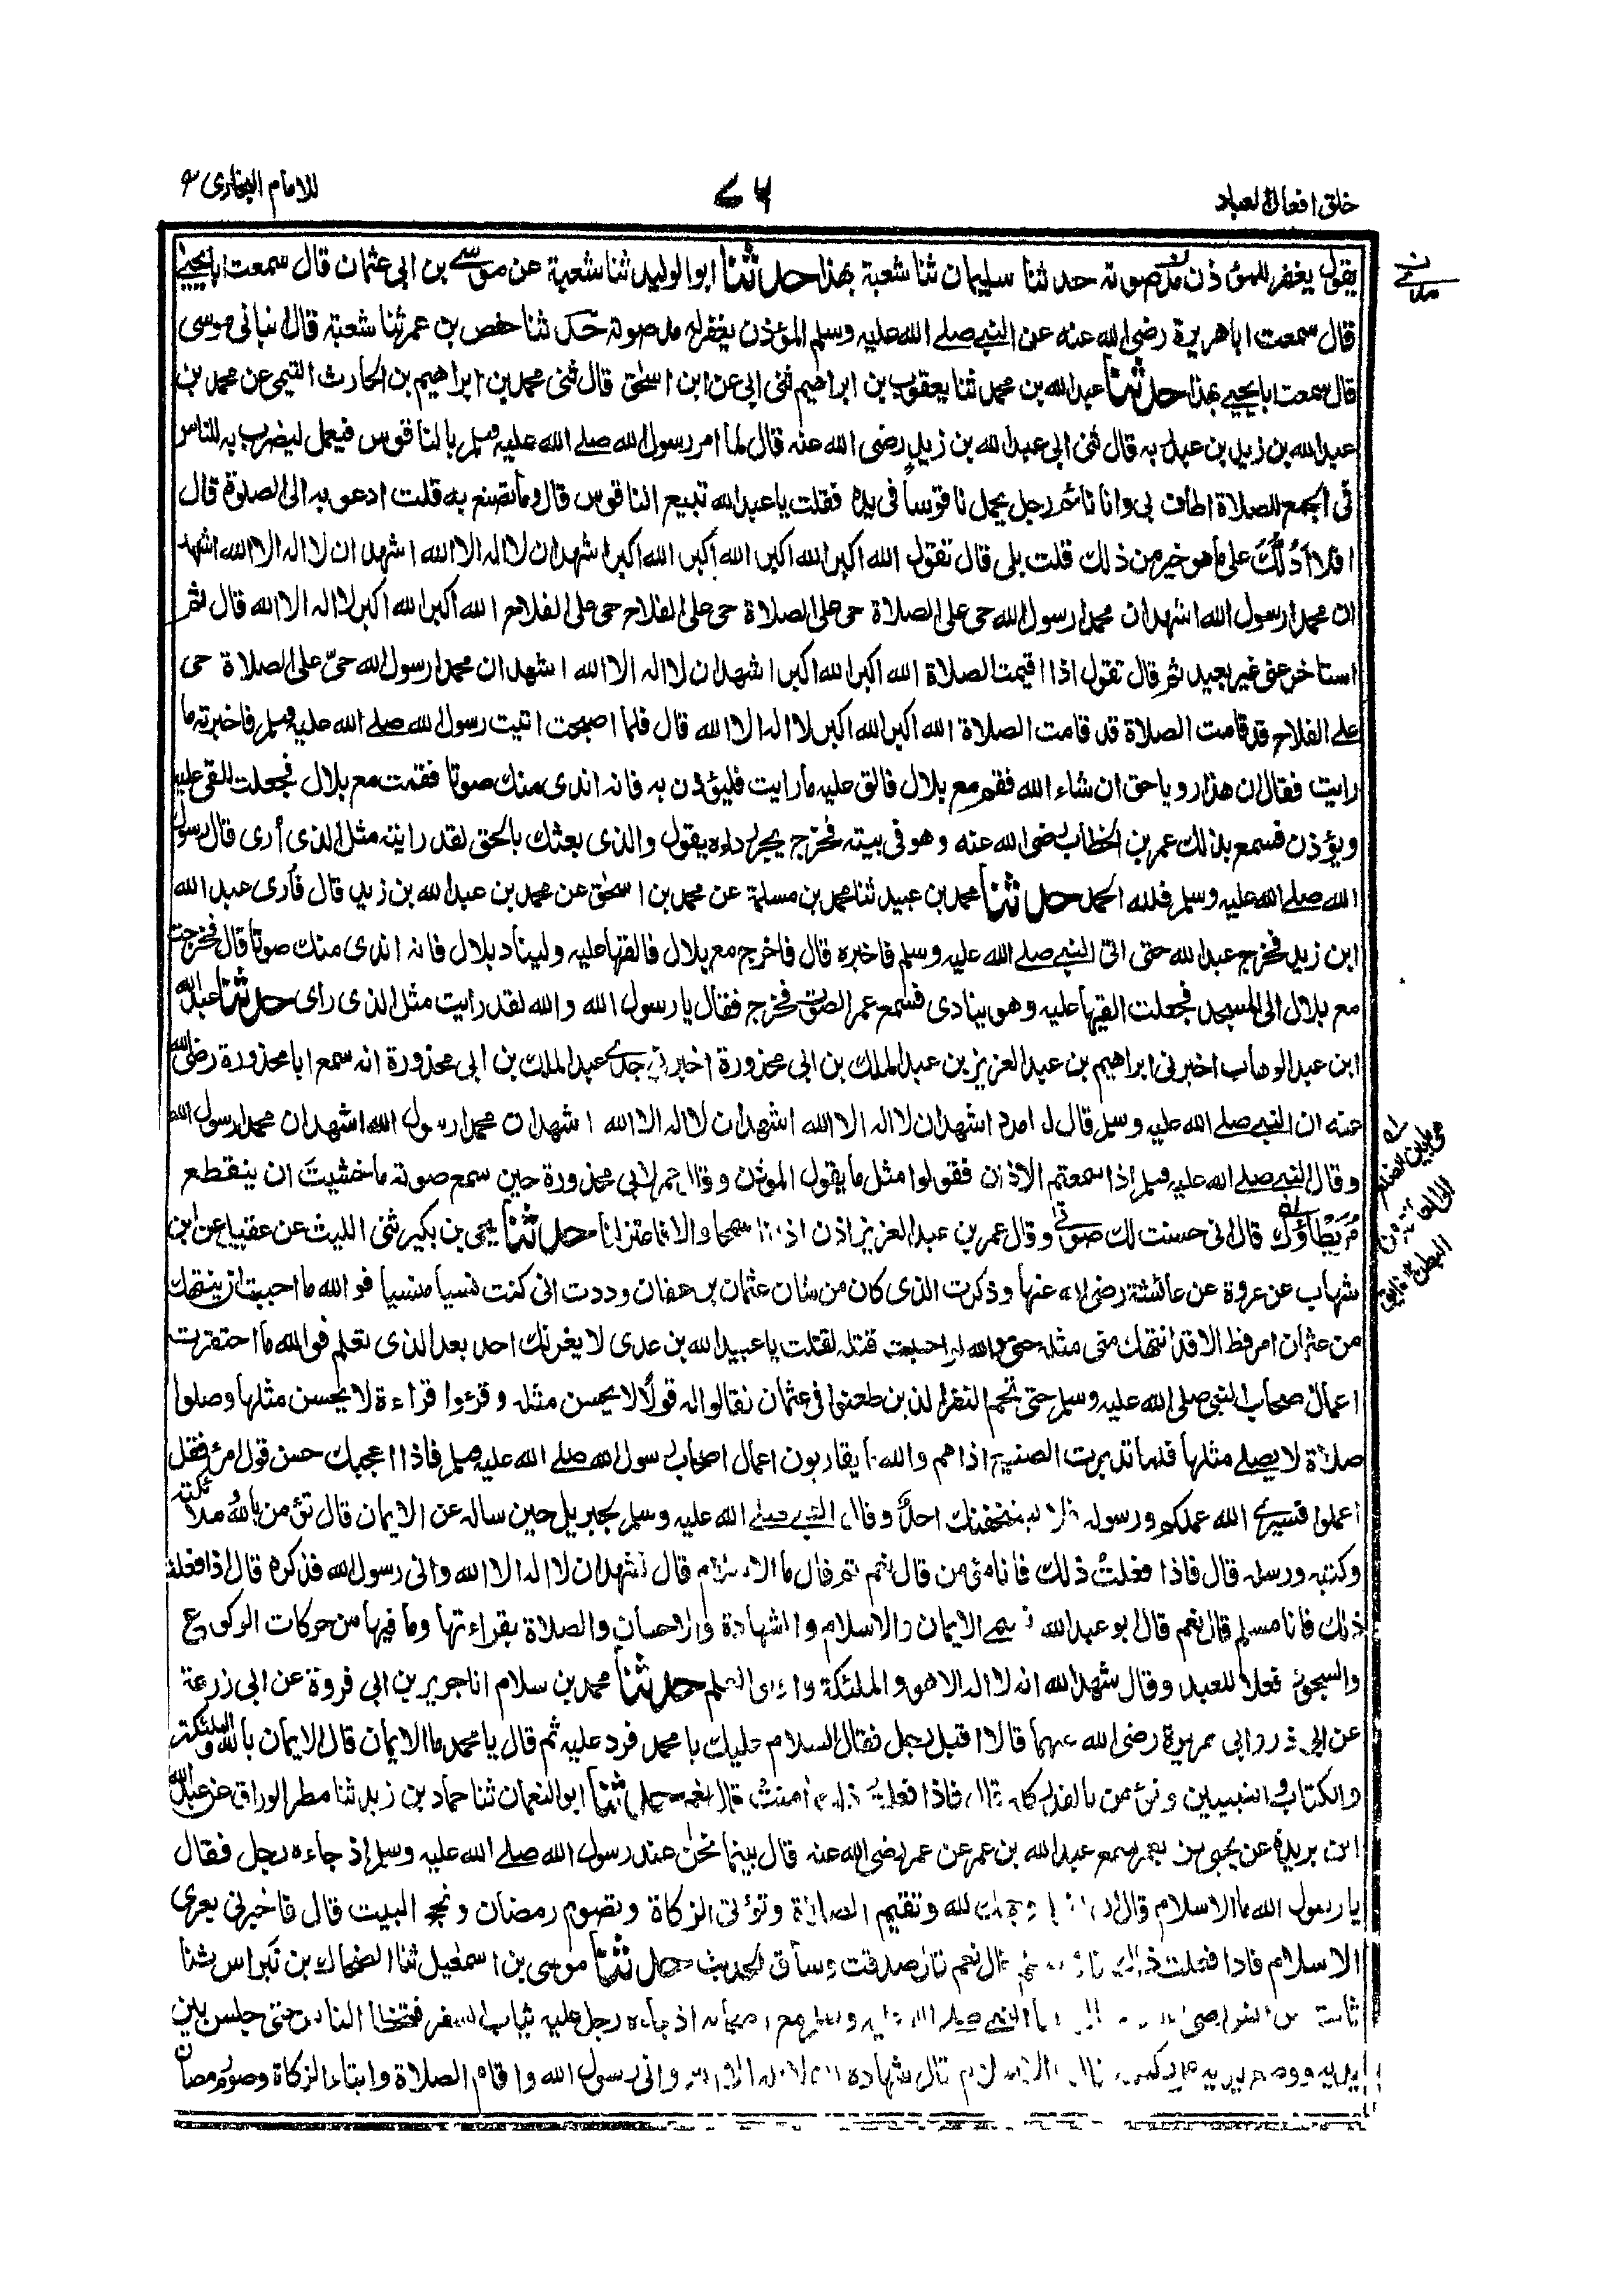 خلق افعال العباد
٧٦
للامام البخاری
يقول يغفر للمؤذن مد صوته حدثنا سليمان ثنا شعبة بهذا حدثنا ابو الوليد ثنا شعبة عن موسى بن ابى عثمان قال سمعت ابا يحيى
قال سمعت ابا هريرة رضى الله عنه عن النبى صلى الله عليه وسلم المؤذن يغفر له مد صوته حدثنا حفص بن عمر ثنا شعبة قال انبانى موسى
قال سمعت ابا يحيى بهذا حدثنا عبد الله بن محمد ثنا يعقوب بن ابراهيم ثنى ابى عن ابن اسحق قال ثنى محمد بن ابراهيم بن الحارث التيمى عن محمد بن
عبد الله بن زيد بن عبد ربه قال ثنى ابى عبد الله بن زيد رضى الله عنه قال لما امر رسول الله صلى الله عليه وسلم بالناقوس فيعمل ليضرب به للناس
فى الجمع للصلاة اطاف بى وانا نائم رجل يحمل ناقوسا فى يده فقلت يا عبد الله تبيع الناقوس قال وما تصنع به قلت ادعو به الى الصلوة قال
افلا ادُلُّكَ على ما هو خير من ذلك قلت بلى قال تقول الله اكبر الله اكبر الله اكبر الله اكبر اشهد ان لا اله الا الله اشهد ان لا اله الا الله اشهد
ان محمدا رسول الله اشهد ان محمدا رسول الله حى على الصلاة حى على الصلاة حى على الفلاح حى على الفلاح الله اكبر الله اكبر لا اله الا الله قال ثم
استاخر عنى غير بعيد ثم قال تقول اذا اقيمت الصلاة الله اكبر الله اكبر اشهد ان لا اله الا الله اشهد ان محمدا رسول الله حىّ على الصلاة حى
على الفلاح قد قامت الصلاة قد قامت الصلاة الله اكبر الله اكبر لا اله الا الله قال فلما اصبحت اتيت رسول الله صلى الله عليه وسلم فاخبرته ما
رايت فقال ان هذا رويا حق ان شاء الله فقم مع بلال فالق عليه ما رايت فليؤذن به فانه اندى منك صوتا فقمت مع بلال فجعلت القى عليه
ويؤذن فسمع بذلك عمر بن الخطاب رضى الله عنه وهو فى بيته فخرج يجر رداءه يقول والذى بعثك بالحق لقد رايته مثل الذى أرى قال رسول
الله صلى الله عليه وسلم فلله الحمد حدثنا محمد بن عبيد ثنا محمد بن مسلمة عن محمد بن اسحق عن محمد بن عبد الله بن زيد قال فأرى عبد الله
ابن زيد فخرج عبد الله حتى اتى النبى صلى الله عليه وسلم فاخبره قال فاخرج مع بلال فالقها عليه ولينا د بلال فانه اندى منك صوتا قال فخرجت
مع بلال الى المسجد فجعلت القيها عليه وهو ينادى فسمع عمر الصوت فخرج فقال يا رسول الله والله لقد رايت مثل الذى راى حدثنا عبد الله
ابن عبد الوهاب اخبرنى ابراهيم بن عبد العزيز بن عبد الملك بن ابى محذورة اخبرنى جدى عبد الملك بن ابى محذورة انه سمع ابا محذورة رضى الله
عنه ان النبى صلى الله عليه وسلم قال اشهد ان لا اله الا الله اشهد ان لا اله الا الله اشهد ان محمدا رسول الله اشهد ان محمدا رسول الله
وقال النبى صلى الله عليه وسلم اذا سمعتم الاذان فقولوا مثل ما يقول المؤذن وقال عمر لابى محذورة حين سمع صوته ما خشيت ان ينقطع
مُرَيْطَاؤك قال انى حسنت لك صوتى وقال عمر بن عبد العزيز اذن اذانا سمحا والا فاعتزلنا حدثنا يحيى بن بكير ثنى الليث عن عقيل عن ابن
شهاب عن عروة عن عائشة رضى الله عنها وذكرت الذى كان من شان عثمان بن عفان وددت انى كنت نسيا منسيا فو الله ما احببت ان ينتهك
من عثمان امر قط الا قد انتهك منى مثله حتى والله لو احببت قتله لقتلت يا عبيد الله بن عدى لا يغرنك احد بعد الذى تعلم فو الله ما احتقرت
اعمال اصحاب النبى صلى الله عليه وسلم حتى نجم النفر الذين طعنوا فى عثمان فقالوا له قولا لا يحسن مثله وقرءوا قراءة لا يحسن مثلها وصلوا
صلاة لا يصلى مثلها فلما تدبرت الصنيع اذا هم والله ما يقاربون اعمال اصحاب رسول الله صلى الله عليه وسلم فاذا اعجبك حسن قول امرئ فقل
اعملوا فسيرى الله عملكم ورسوله ولا يستخفنك احد وقال النبى صلى الله عليه وسلم لجبريل حين ساله عن الايمان قال تؤمن بالله وملائكته
وكتبه ورسله قال فاذا فعلت ذلك فانا مؤمن قال نعم ثم قال ما الاسلام قال تشهد ان لا اله الا الله وانى رسول الله فذكره قال اذا فعلت
ذلك فانا مسلم قال نعم قال ابو عبد الله فسمى الايمان والاسلام والشهادة والاحسان والصلاة بقراءتها وما فيها من حركات الركوع
والسجود فعلا للعبد وقال شهد الله انه لا اله الا هو والملئكة واولو العلم حدثنا محمد بن سلام انا جرير بن ابى فروة عن ابى زرعة
عن ابى ذر وابى هريرة رضى الله عنهما قالا اقبل رجل فقال السلام عليك يا محمد فرد عليه ثم قال يا محمد ما الايمان قال الايمان بالله والملئكة
والكتاب والنبيين وتؤمن بالقدر كله قال فاذا فعلت ذلك امنت قال نعم حدثنا ابو النعمان ثنا حماد بن زيد ثنا مطر الوراق عن عبد الله
ابن بريدة عن يحيى بن يعمر سمع عبد الله بن عمر عن عمر رضى الله عنه قال بينما نحن عند رسول الله صلى الله عليه وسلم اذ جاءه رجل فقال
يا رسول الله ما الاسلام قال لله وتقيم الصلاة وتؤتى الزكاة وتصوم رمضان وتحج البيت قال فاخبرنى بعرى
الاسلام فاذا فعلت قال نعم قال صدقت وساق الحديث حدثنا موسى بن اسمعيل ثنا الضحاك بن نبراس ثنا
ثابت عن انس النبى صلى الله عليه وسلم مع اصحابه اذ جاءه رجل عليه ثياب السفر فتخطا الناس حتى جلس بين
يديه قال شهادة وانى رسول الله واقام الصلاة وايتاء الزكاة وصوم رمضان